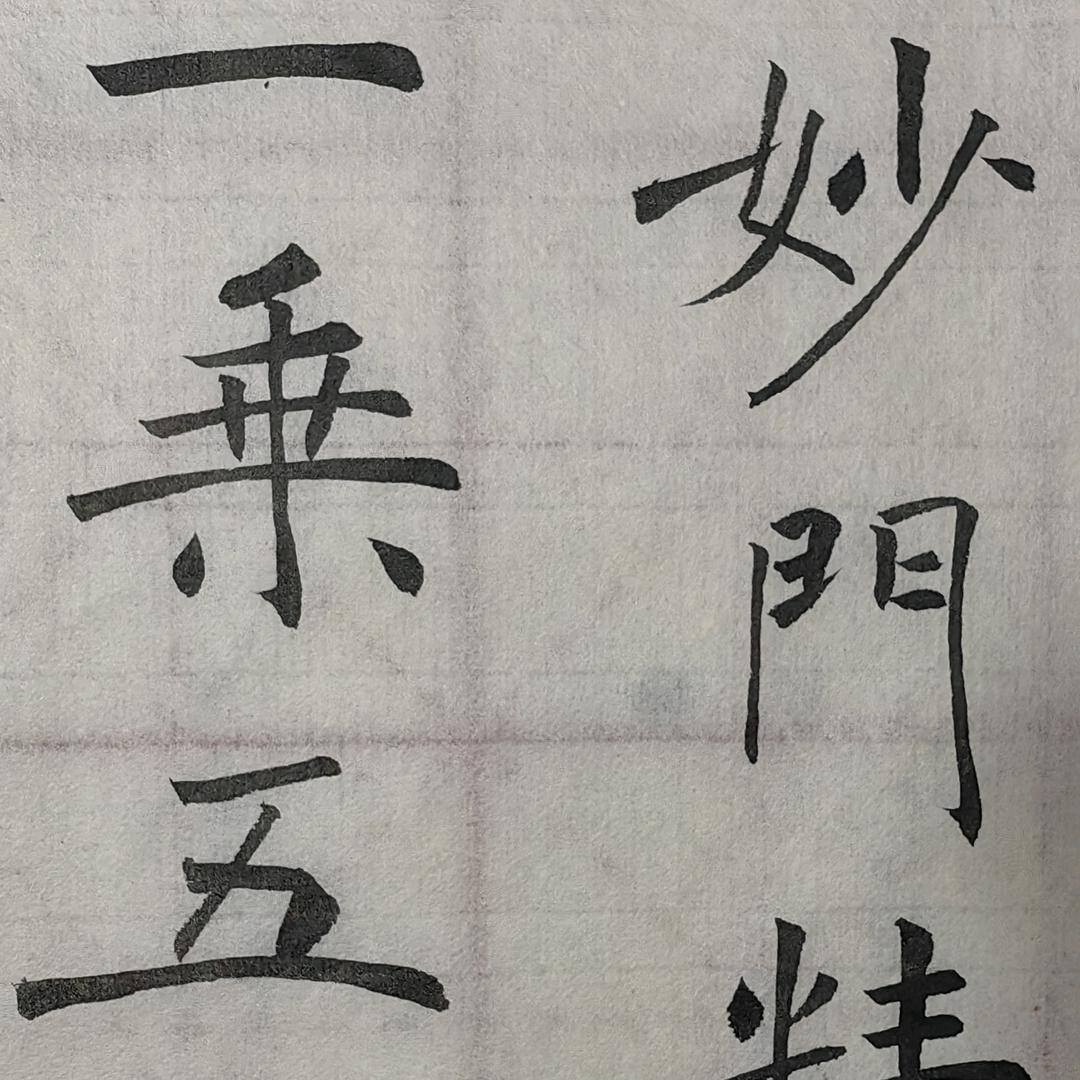 妙門精
一乗五